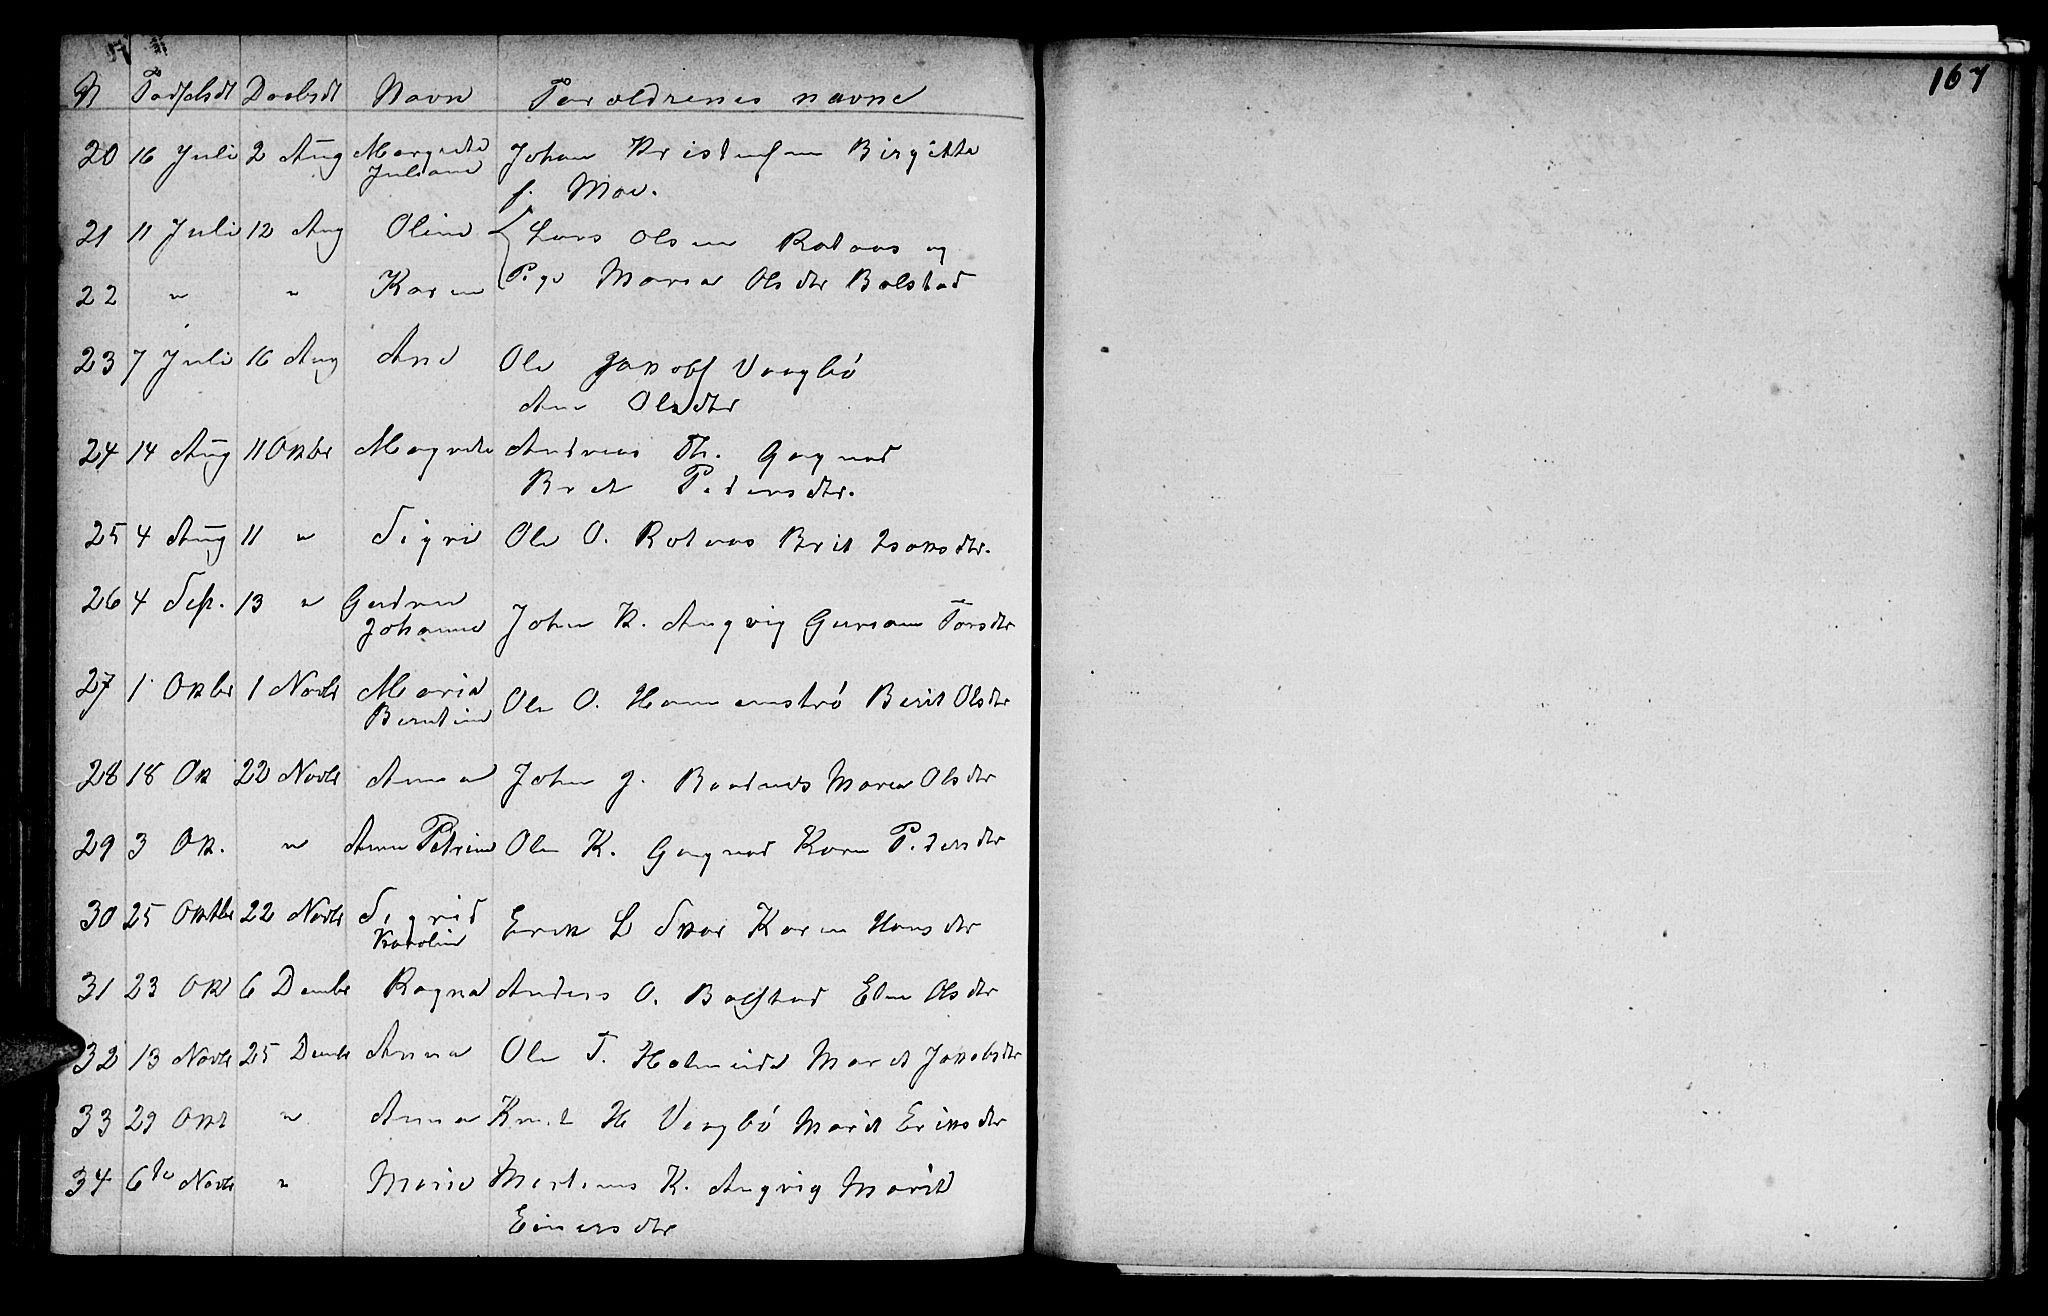 167
N Fødselsdt Daabsdt Navn Forældrenes navne
20 16 Juli 2 Aug Margrethe Johan Kristensen Birgitte
Juliane f. Moe.
21 11 Juli 12 Aug Oline Lars Olsen Rotaas og
22 " " Karen Pige Maria Olsdtr Bolstad
23 7 Juli 16 Aug Ane Ole Jakobs Vaagbø
Ane Olsdtr
24 14 Aug 11 Oktbr Magrete Andreas Th. Gagnad
Bret Pedersdtr.
25 4 Aug 11 " Sigri Ole O. Rotaas Brit Isaksdtr.
26 4 Sep. 13 " Gudrun
Johanne John K. Angvig Guriane Torsdtr
27 1 Oktbr 1 Novbr Marie
Berntine Ole O. Hammerstrø Berit Olsdtr
28 18 Ok 22 Novbr Anna John J. Boadnes Maren Olsdtr
29 3 Ok. " Anne Petrine Ole K. Gagnad Karen Pedersdtr
30 25 Oktbr 22 Novbr Sigrid
Karoline Erik L Skar Karen Hansdtr
31 23 Ok 6 Dembr Ragna Anders O. Bolstad Elen Olsdtr
32 13 Novbr 25 Dembr Anna Ole T. Holmeide Maret Jakobsdtr
33 29 Okt " Anna Knut H Vaagbø Marit Eriksdtr
34 6te Novbr " Marie Martinus K. Angvig Marit
Einersdtr